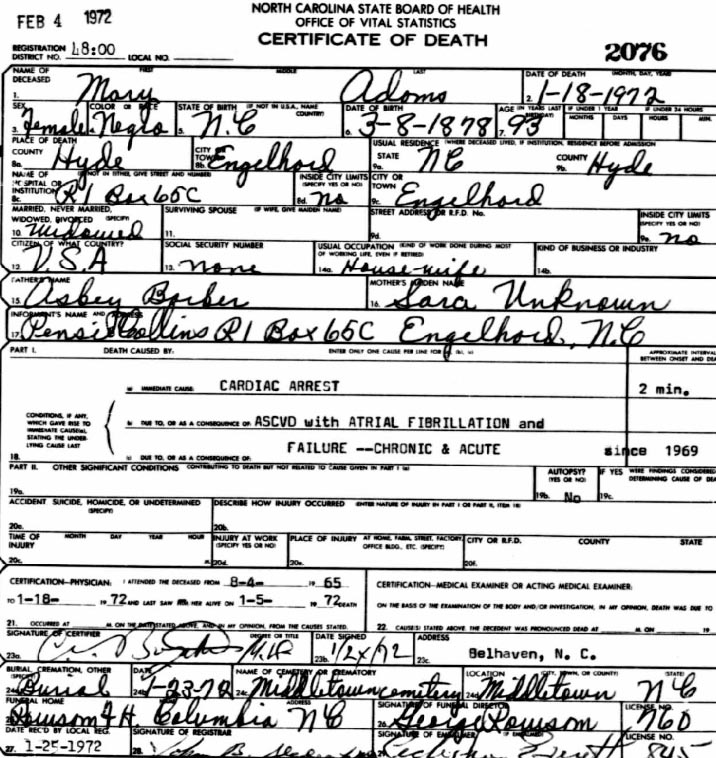 FEB 4 1972
NORTH CAROLINA STATE BOARD OF HEALTH
OFFICE OF VITAL STATISTICS
CERTIFICATE OF DEATH
REGISTRATION DISTRICT NO. 48:00 LOCAL NO. 2076
NAME OF DECEASED FIRST MIDDLE LAST DATE OF DEATH (MONTH, DAY, YEAR)
1. Mary Adams 2. 1-18-1972
SEX COLOR OR RACE STATE OF BIRTH (IF NOT IN U.S.A., NAME COUNTRY) DATE OF BIRTH AGE (IN YEARS LAST BIRTHDAY) IF UNDER 1 YEAR IF UNDER 24 HOURS
MONTHS DAYS HOURS MIN.
3. Female 4. Negro 5. N.C 6. 3-8-1878 7. 93
PLACE OF DEATH USUAL RESIDENCE (WHERE DECEASED LIVED, IF INSTITUTION, RESIDENCE BEFORE ADMISSION
COUNTY CITY OR TOWN STATE COUNTY
8a. Hyde 8b. Engelhard 9a. NC 9b. Hyde
NAME OF HOSPITAL OR INSTITUTION (IF NOT IN EITHER, GIVE STREET AND NUMBER) INSIDE CITY LIMITS (SPECIFY YES OR NO) CITY OR TOWN
8c. R1 Box 65C 8d. no 9c. Engelhard
MARRIED, NEVER MARRIED, WIDOWED, DIVORCED (SPECIFY) SURVIVING SPOUSE (IF WIFE, GIVE MAIDEN NAME) STREET ADDRESS OR R.F.D. No. INSIDE CITY LIMITS (SPECIFY YES OR NO)
10. Widowed 11. 9d. 9e. no
CITIZEN OF WHAT COUNTRY? SOCIAL SECURITY NUMBER USUAL OCCUPATION (KIND OF WORK DONE DURING MOST OF WORKING LIFE, EVEN IF RETIRED) KIND OF BUSINESS OR INDUSTRY
12. U.S.A 13. none 14a. House-wife 14b.
FATHER'S NAME MOTHER'S MAIDEN NAME
15. Asbey Barber 16. Sara Unknown
INFORMANT'S NAME AND ADDRESS
17. Pensie Collins R1 Box 65C Engelhard, N.C
PART I. DEATH CAUSED BY: ENTER ONLY ONE CAUSE PER LINE FOR (a), (b), (c) APPROXIMATE INTERVAL BETWEEN ONSET AND DEA
(a) IMMEDIATE CAUSE CARDIAC ARREST 2 min.
CONDITIONS, IF ANY, WHICH GAVE RISE TO IMMEDIATE CAUSE(a), STATING THE UNDERLYING CAUSE LAST
(b) DUE TO, OR AS A CONSEQUENCE OF: ASCVD with ATRIAL FIBRILLATION and
FAILURE --CHRONIC & ACUTE since 1969
18. (c) DUE TO, OR AS A CONSEQUENCE OF:
PART II. OTHER SIGNIFICANT CONDITIONS CONTRIBUTING TO DEATH BUT NOT RELATED TO CAUSE GIVEN IN PART I (a) AUTOPSY? (YES OR NO) IF YES WERE FINDINGS CONSIDERED DETERMINING CAUSE OF DEA
19a. 19b. No 19c.
ACCIDENT SUICIDE, HOMICIDE, OR UNDETERMINED (SPECIFY) DESCRIBE HOW INJURY OCCURRED (ENTER NATURE OF INJURY IN PART I OR PART II, ITEM 18)
20a. 20b.
TIME OF INJURY MONTH DAY YEAR HOUR INJURY AT WORK (SPECIFY YES OR NO) PLACE OF INJURY AT HOME, FARM, STREET, FACTORY, OFFICE BLDG., ETC. (SPECIFY) CITY OR R.F.D. COUNTY STATE
20c. M. 20d. 20e. 20f.
CERTIFICATION—PHYSICIAN: I ATTENDED THE DECEASED FROM 8-4- 19 65 CERTIFICATION—MEDICAL EXAMINER OR ACTING MEDICAL EXAMINER:
TO 1-18- 19 72 AND LAST SAW HER ALIVE ON 1-5- 19 72 DEATH ON THE BASIS OF THE EXAMINATION OF THE BODY AND/OR INVESTIGATION, IN MY OPINION, DEATH WAS DUE TO
21. OCCURRED AT M. ON THE DATE STATED ABOVE, AND IN MY OPINION, FROM THE CAUSES STATED. 22. CAUSE(S) STATED ABOVE THE DECEDENT WAS PRONOUNCED DEAD AT M. ON 19
SIGNATURE OF CERTIFIER DEGREE OR TITLE DATE SIGNED ADDRESS
23a. 23b. 23c. Belhaven, N. C.
BURIAL, CREMATION, OTHER (SPECIFY) DATE NAME OF CEMETERY OR CREMATORY LOCATION (CITY, TOWN, OR COUNTY) (STATE)
24a. Burial 24b. 1-23-72 24c. Middletown cemetery 24d. Middletown NC
FUNERAL HOME ADDRESS SIGNATURE OF FUNERAL DIRECTOR LICENSE NO.
Rowsom F.H. Columbia NC 26. George Rowsom 760
DATE REC'D BY LOCAL REG. SIGNATURE OF REGISTRAR SIGNATURE OF EMBALMER LICENSE NO.
27. 1-25-1972 28. John B. Everett 845